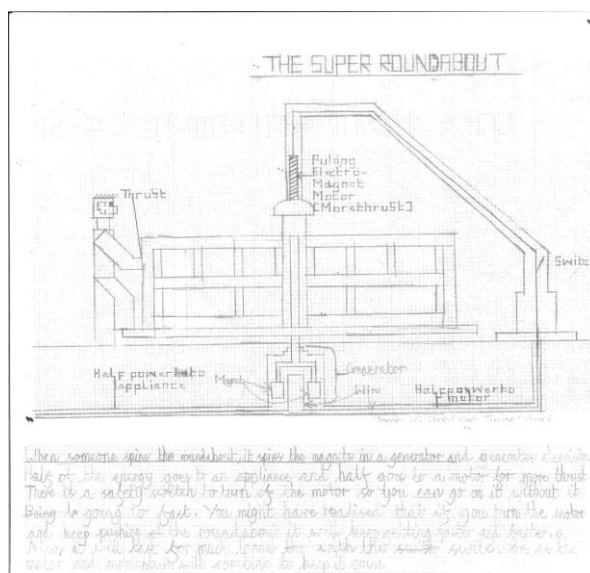 THE SUPER ROUNDABOUT
Puling
Electro-
Magnet
Motor
[More thrust]
Thrust
Switc
Generator
Half power to
appliance
Magnet
Wire
Half power to
motor
When someone spins the roundabout, it spins the magnets in a generator and generates electricity.
Half of the energy goes to an appliance and half goes to a motor for more thrust.
There is a safety switch to turn of the motor so you can go on it without it
Being to going to fast. You might have realised that if you turn the motor
and keep pushing the roundabout it will keep getting faster and faster.
Also it will last for much longer with the switch on as the
motor and momentum will combine to keep it going.